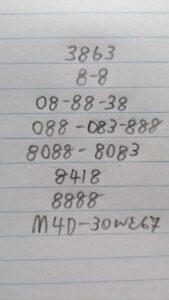 3863
8-8
08-88-38
088-083-888
8088-8083
8418
8888
M4D-30WE67